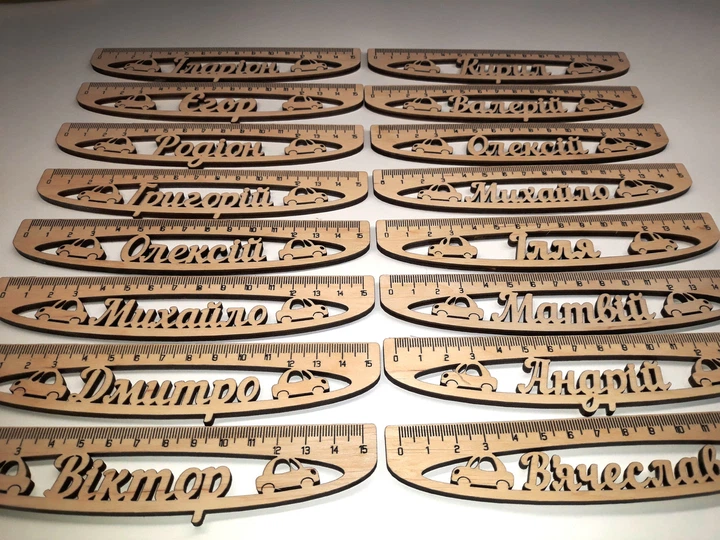 Іларіон
Кирил
Єгор
Валерій
Родіон
Олексій
Григорій
Михайло
Олексій
Ілля
Михайло
Матвій
Дмитро
Андрій
Віктор
В'ячеслав